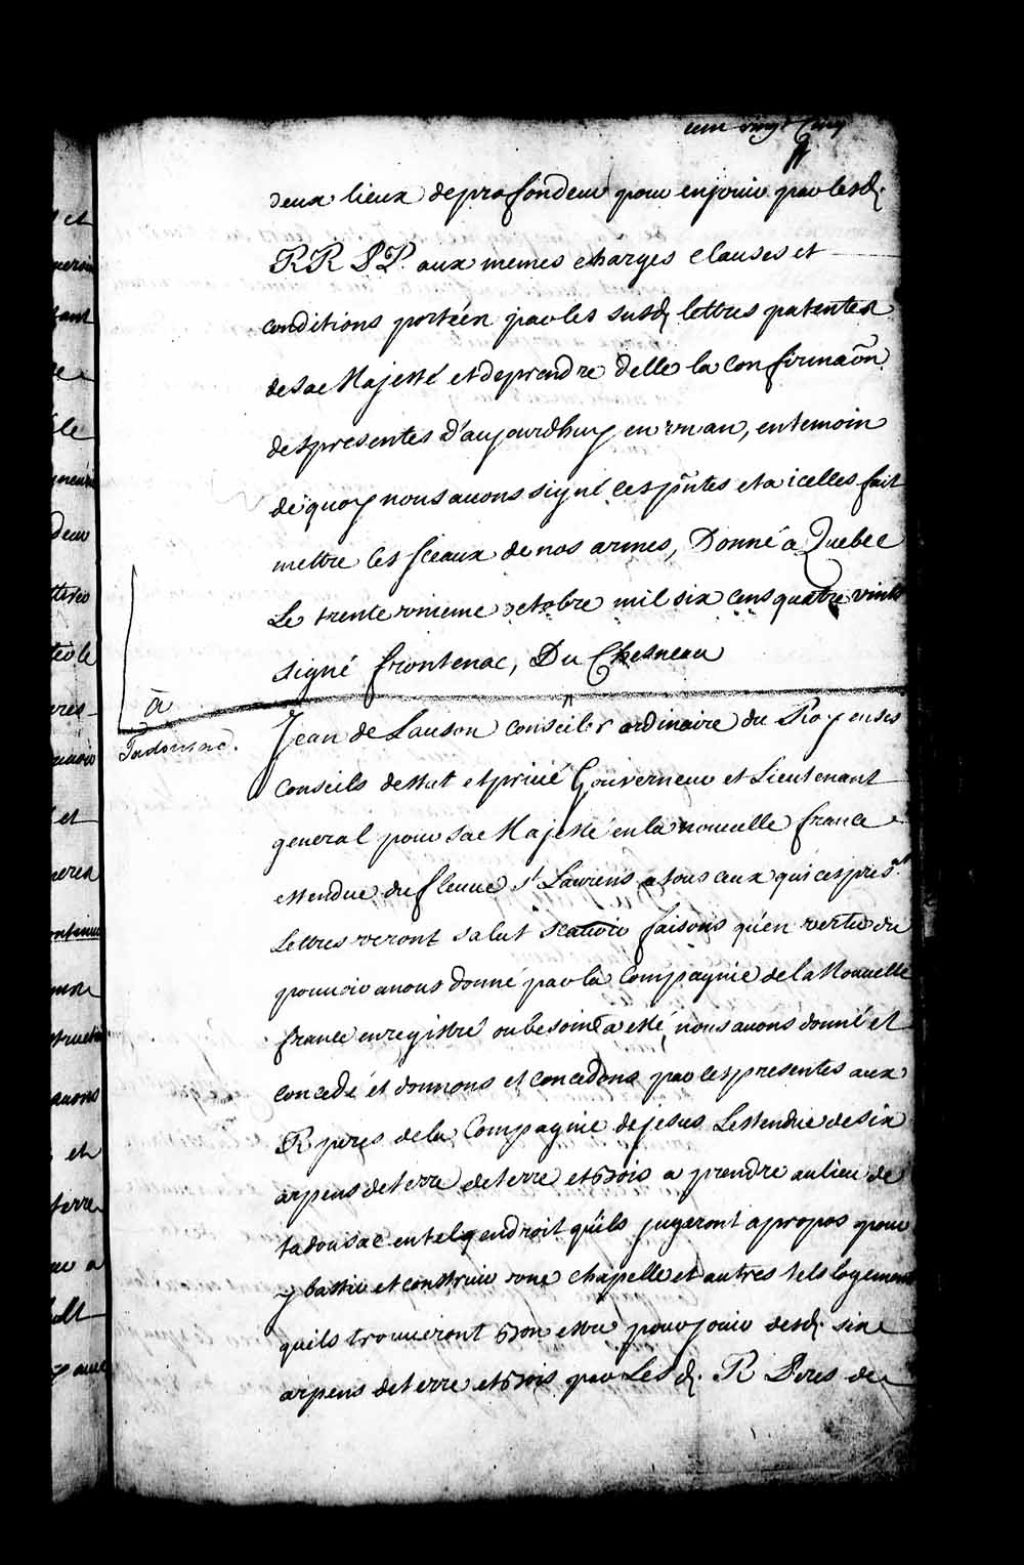 cent vingt Cinq
deux lieux de profondeur pour en jouir par lesd.
RR PP. aux mêmes charges clauses et
conditions portéen par les susd. lettres patentes
de sae Majesté et de prendre delle la Confirmaōn
des presentes d'aujourdhuy en un an, en temoin
de quoy nous auons signé ces pñtes et a icelles fait
mettre les sceaux de nos armes, Donné a Quebec
Le trente unieme octobre mil six cens quatre vints
signé frontenac, Du Chesneau
à
Tadoussac.
Jean de Lauson conseiler ordinaire du Roy en ses
Conseils destat et priué Gouverneur et Lieutenant
general pour sae Majesté en la nouuelle france
estendue du fleuue st Laurens a tous ceux qui ces presñt
Lettres veront salut scauoir faisons qu'en vertu du
pouuoir a nous donné par la Compagnie de la Nouuelle
france enregistré ou besoin a esté, nous auons donné et
concedé et donnons et concedons par ces presentes aux
R peres de la Compagnie de jesus Lestendue de six
arpens de terre de terre et bois a prendre au lieu de
tadousac en tel endroit qu'ils jugeront apropos pour
y bastir et construire une chapelle et autres tels logemens
quils trouueront bon estre pour jouir desd. six
arpens de terre et bois par Lesd. R Peres de